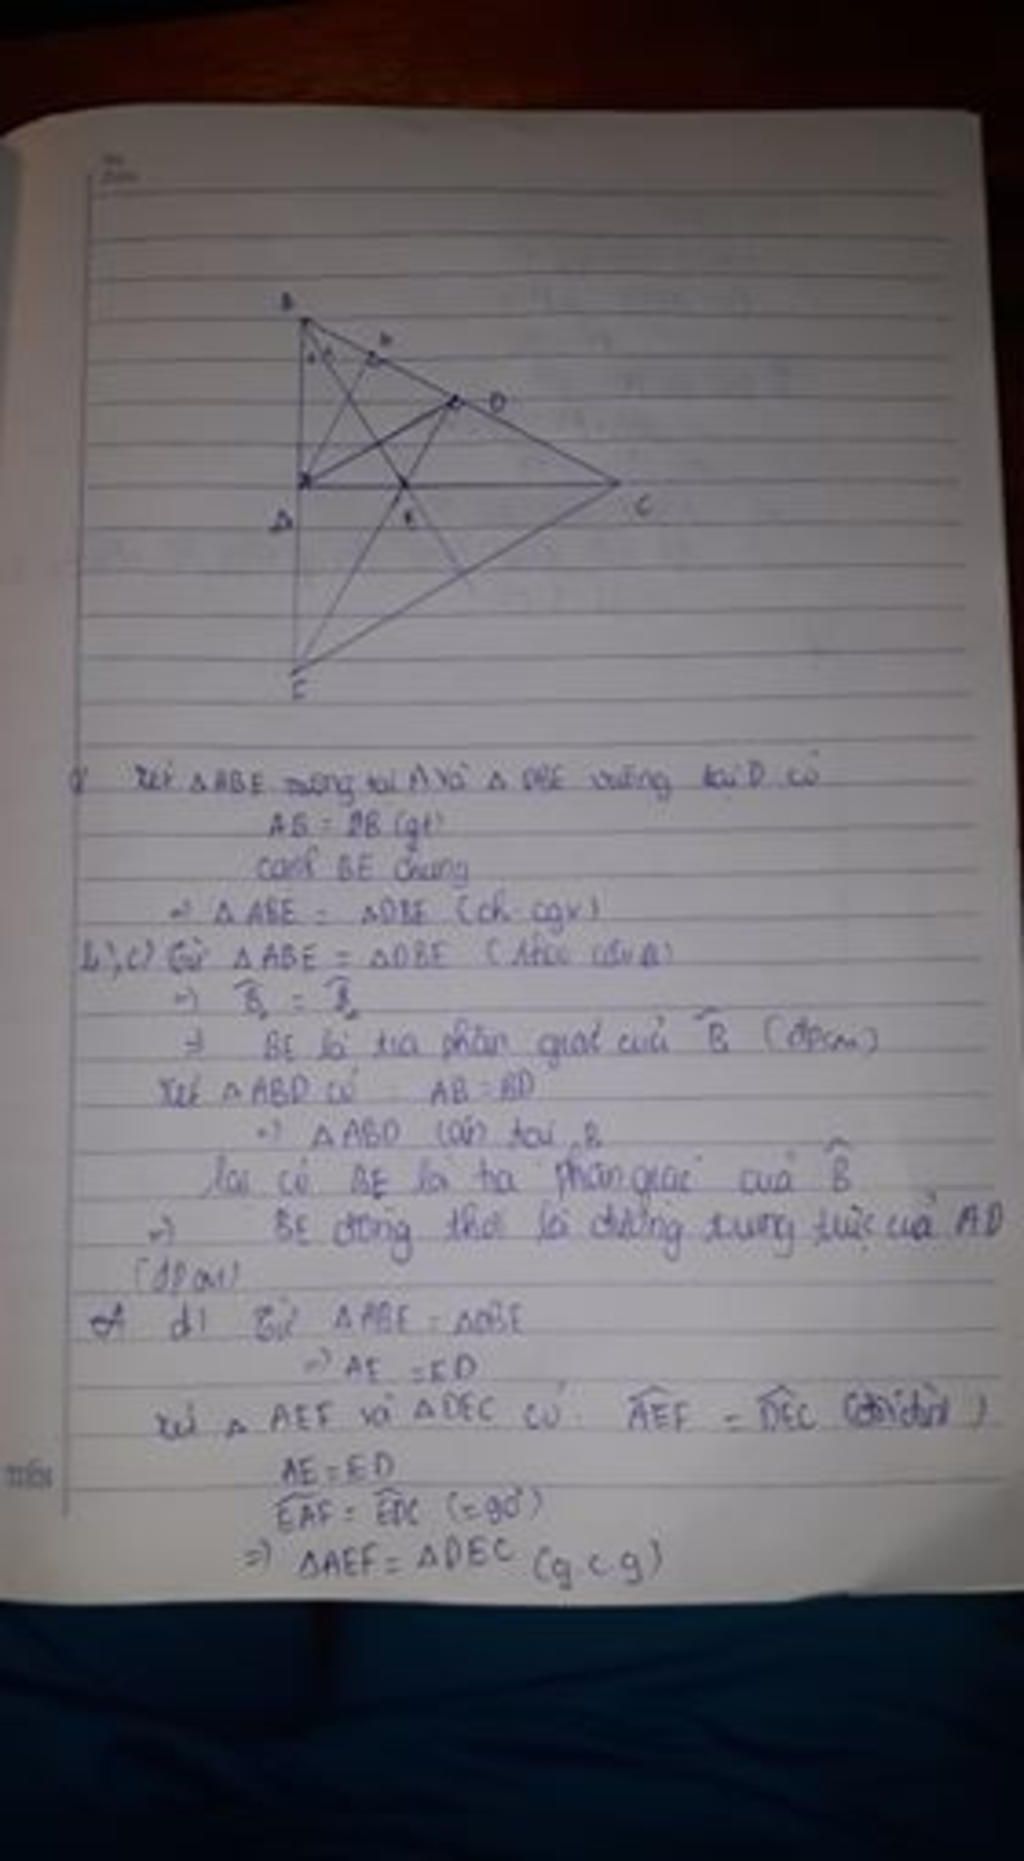 B
D
A
E
C
F
Xét △ABE vuông tại A và △DBE vuông tại D có
AB = DB (gt)
cạnh BE chung
=> △ABE = △DBE (ch cgv)
b), c) Từ △ABE = △DBE (theo câu a)
=> B = B
=> BE là tia phân giác của B (đpcm)
Xét △ABD có AB = BD
=> △ABD cân tại B
lại có BE là tia phân giác của B
=> BE đồng thời là đường trung trực của AD
(đpcm)
d) Từ △ABE = △DBE
=> AE = ED
Xét △AEF và △DEC có AEF = DEC (đối đỉnh)
AE = ED
EAF = EDC (= 90°)
=> △AEF = △DEC (g c g)